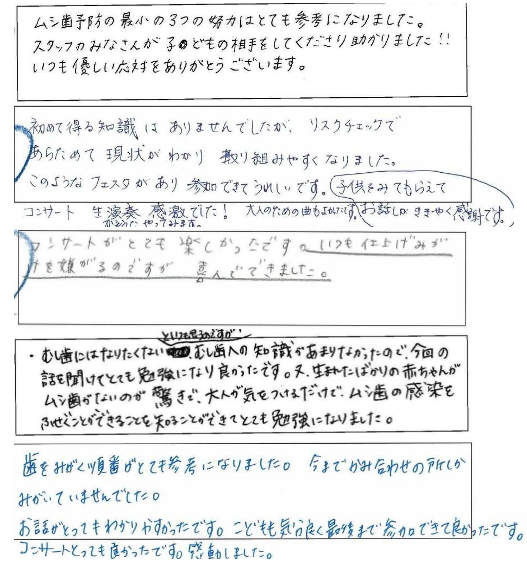 ムシ歯予防の最小の3つの努力はとても参考になりました。
スタッフのみなさんが子どもの相手をしてくださり助かりました!!
いつも優しい応対をありがとうございます。
初めて得る知識はありませんでしたが、リスクチェックで
あらためて現状がわかり取り組みやすくなりました。
このようなフェスタがあり参加できてうれしいです。子供をみてもらえて
コンサート 生演奏 感激でした! 大人のための曲もよかったです。お話しがききやすく感謝です。
コンサートがとても楽しかったです。いつも仕上げみが
きを嫌がるのですが喜んでできました。
といつも思うのですが
・むし歯にはなりたくない、むし歯への知識があまりなかったので、今回の
話を聞けてとても勉強になり良かったです。又、生まれたばかりの赤ちゃんが
ムシ歯がないのが驚きで、大人が気をつけるだけで、ムシ歯の感染を
ふせぐことができることを知ることができてとても勉強になりました。
歯をみがく順番がとても参考になりました。今までかみ合わせの所しか
みがいていませんでした。
お話がとってもわかりやすかったです。こどもも気分良く最後まで参加できて良かったです。
コンサートとっても良かったです。感動しました。